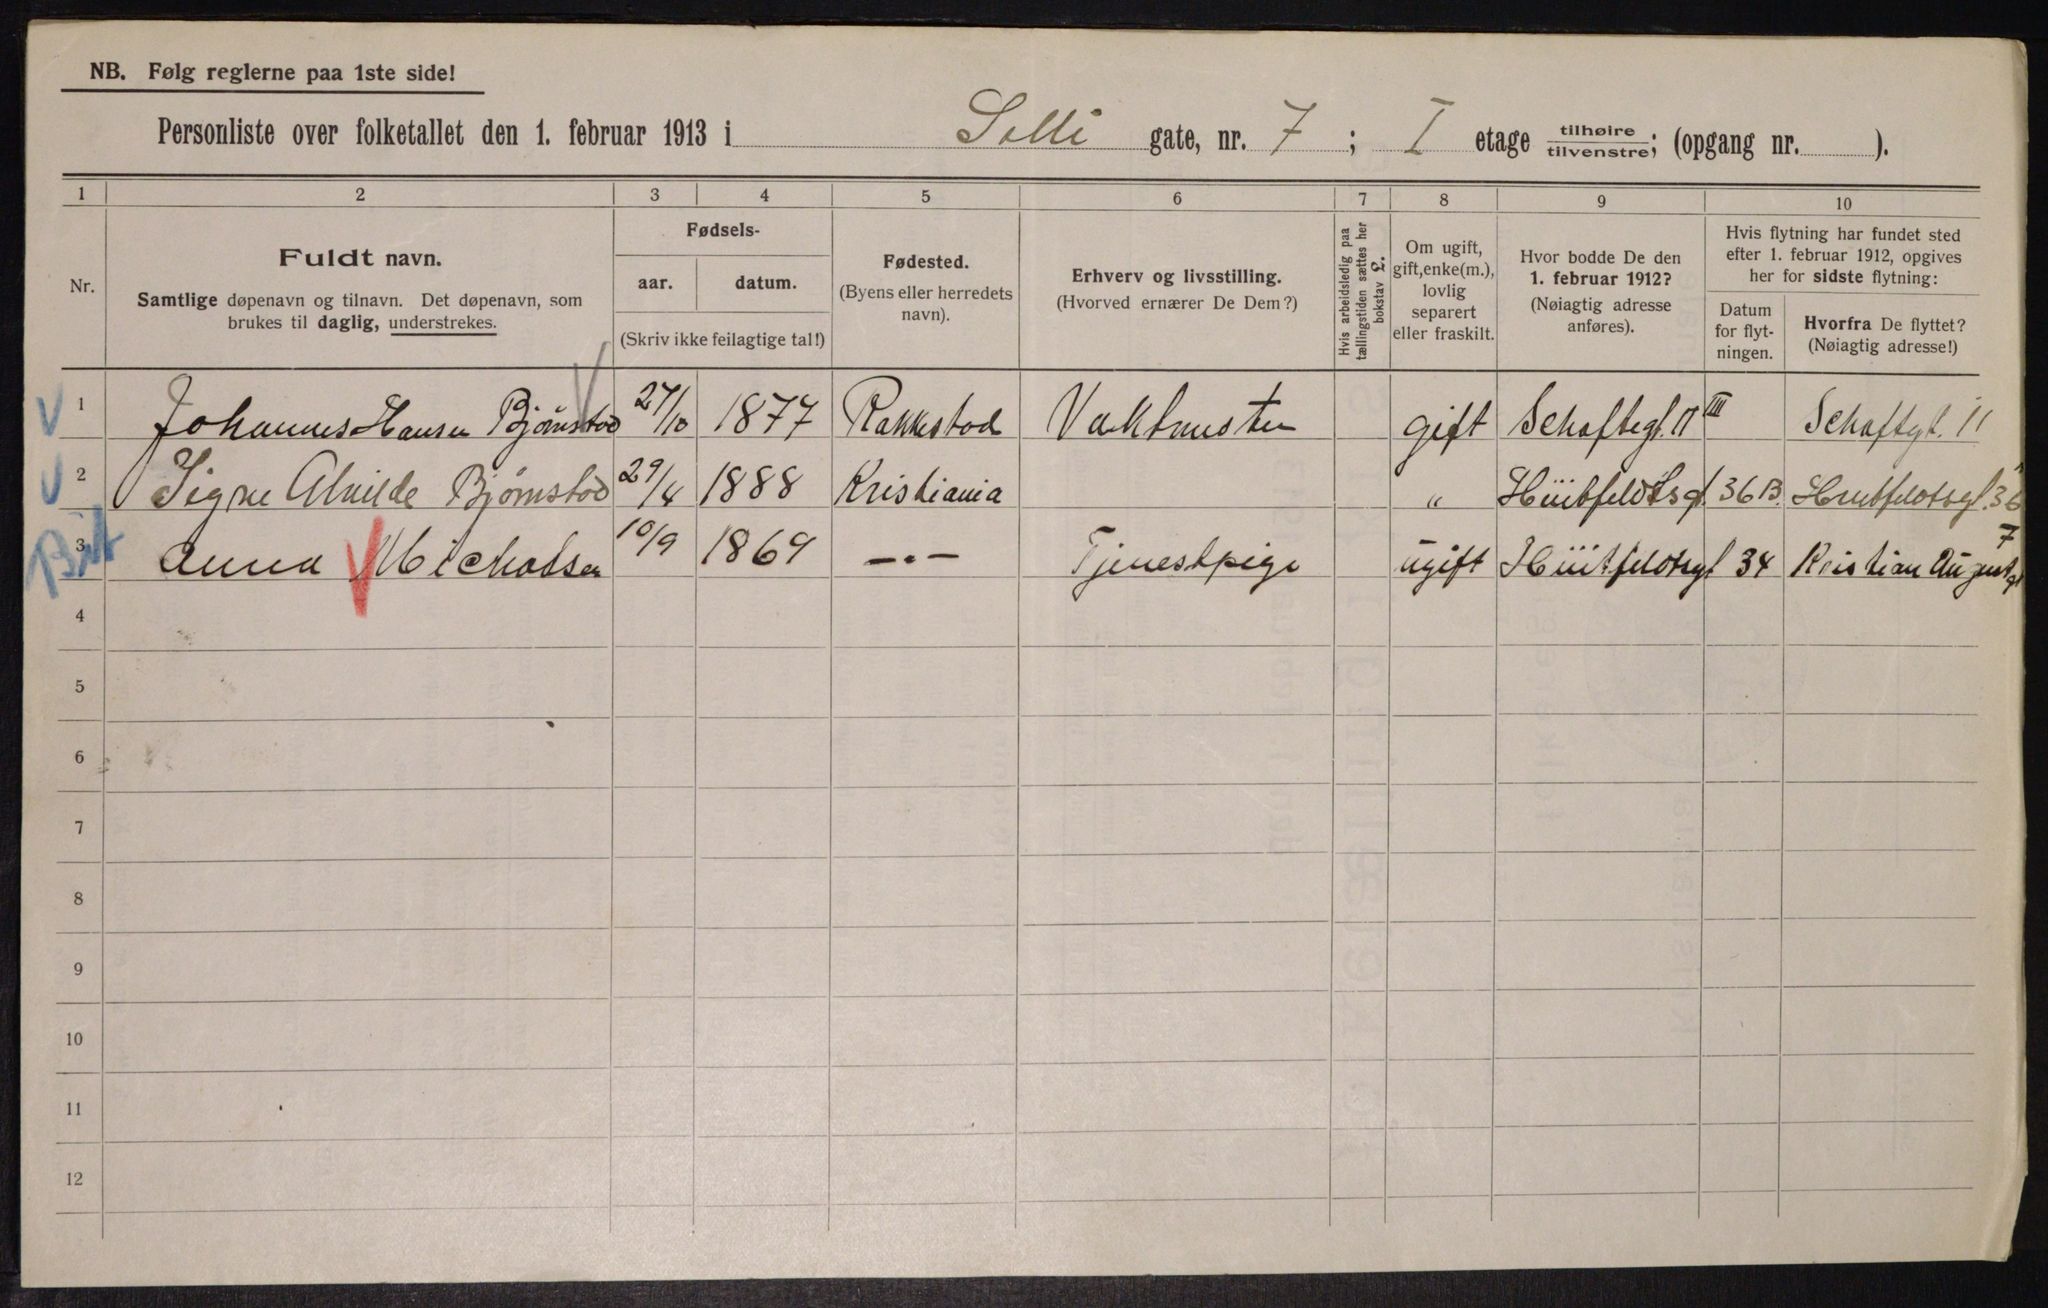 NB. Følg reglerne paa 1ste side!
Personliste over folketallet den 1. februar 1913 i Solli gate, nr. 7 ; I etage tilhøire tilvenstre; (opgang nr. ).
1 2 3 4 5 6 7 8 9 10
Nr.
Fuldt navn.
Samtlige døpenavn og tilnavn. Det døpenavn, som
brukes til daglig, understrekes.
Fødsels-
aar. datum.
(Skriv ikke feilagtige tal!)
Fødested.
(Byens eller herredets
navn).
Erhverv og livsstilling.
(Hvorved ernærer De Dem?)
Hvis arbeidsledig paa
tællingstiden sættes her
bokstav L.
Om ugift,
gift, enke(m.),
lovlig
separert
eller fraskilt.
Hvor bodde De den
1. februar 1912?
(Nøiagtig adresse
anføres).
Hvis flytning har fundet sted
efter 1. februar 1912, opgives
her for sidste flytning:
Datum
for flyt-
ningen.
Hvorfra De flyttet?
(Nøiagtig adresse!)
1 Johannes Hansen Bjørnstad 27/10 1877 Rakkestad Vaktmester gift Schaftegt. 11 III Schaftgt. 11
2 Signe Alvilde Bjørnstad 29/4 1888 Kristiania " Hüitfeldtsgt 36 B. Huitfeldtsgt. 36
3 Anna Michalsen 10/9 1869 —"— Tjenestpige ugift Hüitfeldtsgt 34 Kristian Augustgt 7
4
5
6
7
8
9
10
11
12